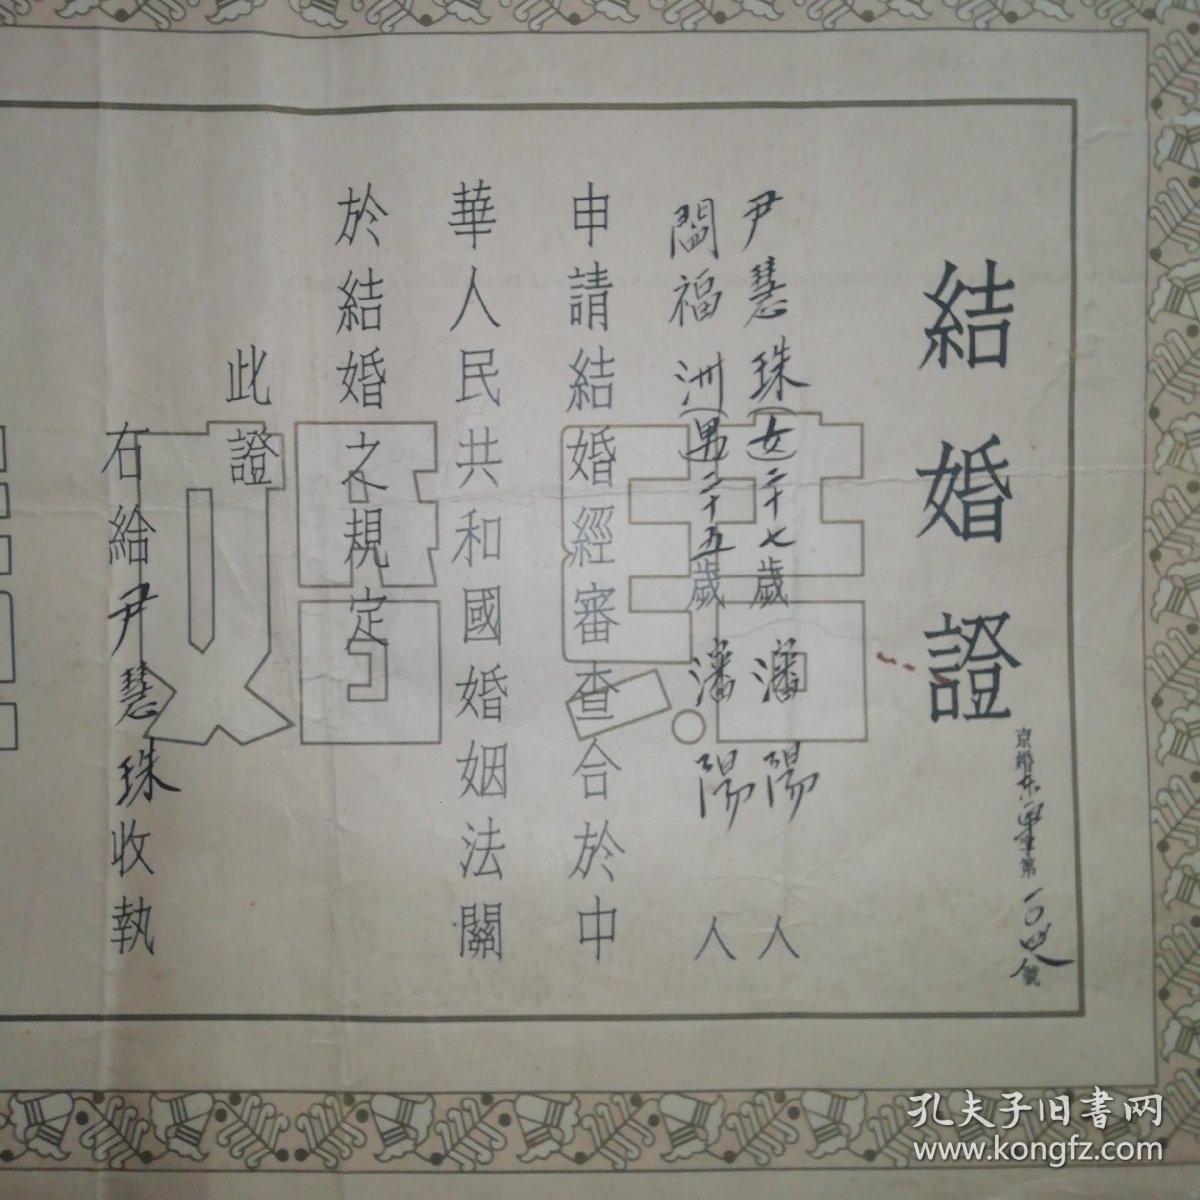 結婚證
京婚东單字第一〇四号
尹慧珠(女)二十七歲 瀋陽人
閻福洲(男)二十五歲 瀋陽人
申請結婚經審查合於中
華人民共和國婚姻法關
於結婚之規定
此證
右給尹慧珠收執
孔夫子旧書网
www.kongfz.com